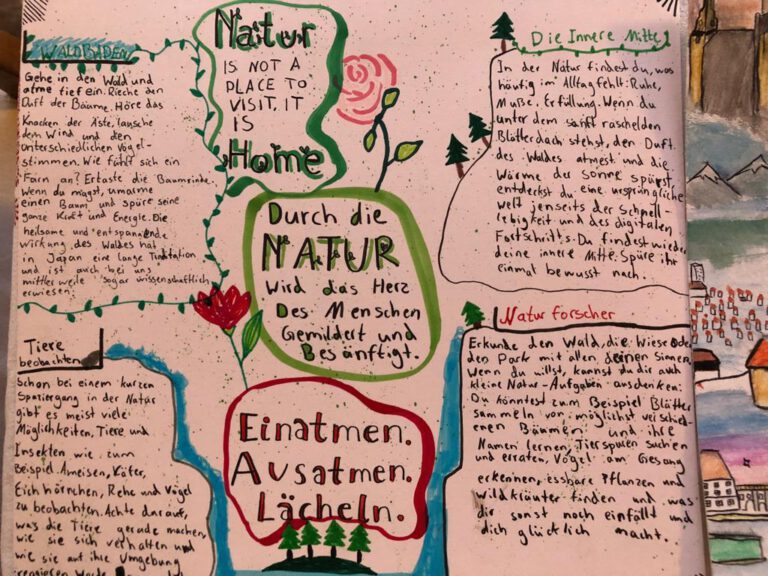 WALDBADEN
Gehe in den Wald und
atme tief ein. Rieche den
Duft der Bäume. Höre das
Knacken der Äste, lausche
dem Wind und den
Unterschiedlichen Vogel-
stimmen. Wie fühlt sich ein
Farn an? Ertaste die Baumrinde.
Wenn du magst, umarme
einen Baum und spüre seine
ganze Kraft und Energie. Die
heilsame und entspannende
wirkung des Waldes hat
in Japan eine lange Tradition
und ist auch bei uns
mittlerweile sogar wissenschaftlich
erwiesen.
Natur
IS NOT A
PLACE TO
VISIT, IT
IS
Home
Die Innere Mitte
In der Natur findest du, was
häufig im Alltag fehlt: Ruhe,
Muße, Erfüllung. Wenn du
unter dem sanft raschelnden
Blätterdach stehst, den Duft
des Waldes atmest und die
Wärme der Sonne spürst,
entdeckst du eine ursprüngliche
Welt jenseits der Schnell-
lebigkeit und des digitalen
Fortschritts. Du findest wieder
deine innere Mitte. Spüre ihr
einmal bewusst nach.
Durch die
NATUR
Wird das Herz
Des Menschen
Gemildert und
Besänftigt.
Tiere
beobachten
Schon bei einem kurzen
Spaziergang in der Natur
gibt es meist viele
Möglichkeiten, Tiere und
Insekten wie zum
Beispiel Ameisen, Käfer,
Eichhörnchen, Rehe und Vögel
zu beobachten. Achte darauf,
was die Tiere gerade machen,
wie sie sich verhalten und
wie sie auf ihre Umgebung
reagieren.
Einatmen.
Ausatmen.
Lächeln.
Naturforscher
Erkunde den Wald, die Wiese oder
den Park mit allen deinen Sinnen.
Wenn du willst, kannst du dir auch
kleine Natur-Aufgaben ausdenken:
Du könntest zum Beispiel Blätter
sammeln von möglichst verschied-
enen Bäumen und ihre
Namen lernen, Tierspuren suchen
und erraten, Vögel am Gesang
erkennen, essbare Pflanzen und
Wildkräuter finden und was
dir sonst noch einfällt und
dich glücklich macht.